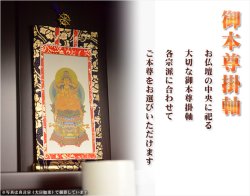 御本尊掛軸
お仏壇の中央に祀る
大切な御本尊掛軸
各宗派に合わせて
ご本尊をお選びいただけます